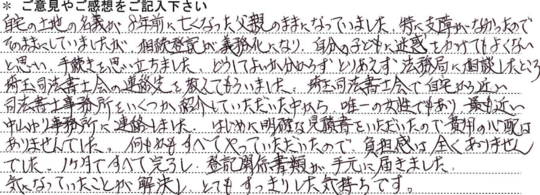 * ご意見やご感想をご記入下さい
自宅の土地の名義が8年前に亡くなった父親のままになっていました。特に支障がなかったので
そのままにしていましたが、相続登記が義務化になり、自分の子どもに迷惑をかけてもよくない
と思い、手続きを思い立ちました。どうしてよいか分からず、とりあえず法務局に相談したところ
埼玉司法書士会の連絡先を教えてもらいました。埼玉司法書士会で自宅から近い
司法書士事務所をいくつか紹介していただいた中から、唯一の女性でもあり、最も近い
中山ゆり事務所に連絡しました。はじめに明確な見積書をいただいたので費用の心配は
ありませんでした。何もかもすべてやっていただいたので、負担感は全くありません
でした。1ヶ月ですべて完了し、登記関係書類が手元に届きました。
気になっていたことが解決し、とてもすっきりした気持ちです。